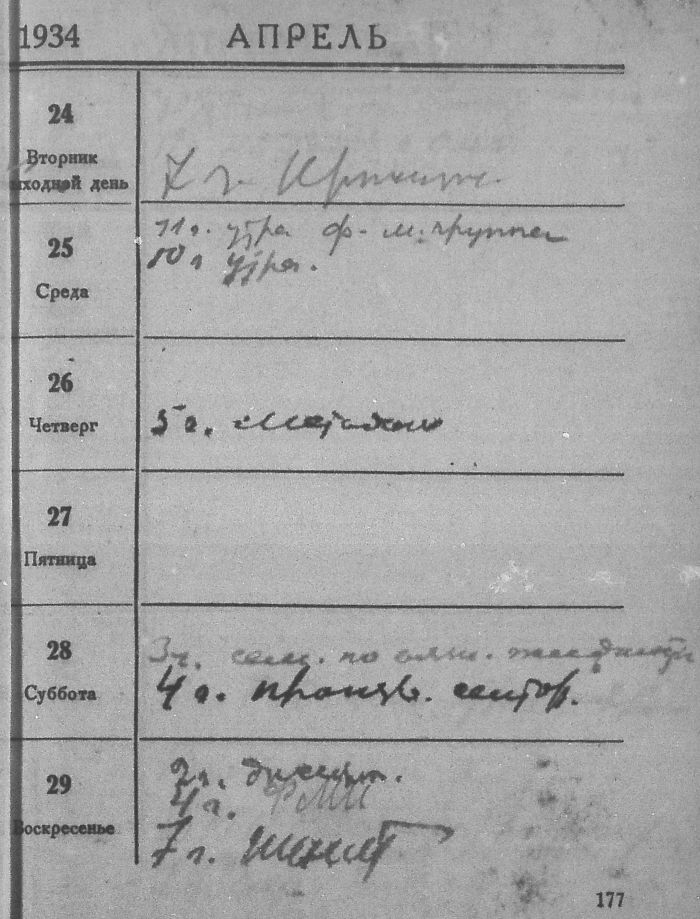 1934 АПРЕЛЬ
24
Вторник
выходной день
7 ч.
25
Среда
11 ч. утра ф.-м. группа
10 ч утра.
26
Четверг
5 ч.
27
Пятница
28
Суббота
3 ч. сем. по
4 ч. произв. сектор.
29
Воскресенье
2 ч.
4 ч. ФМИ
7 ч.
177